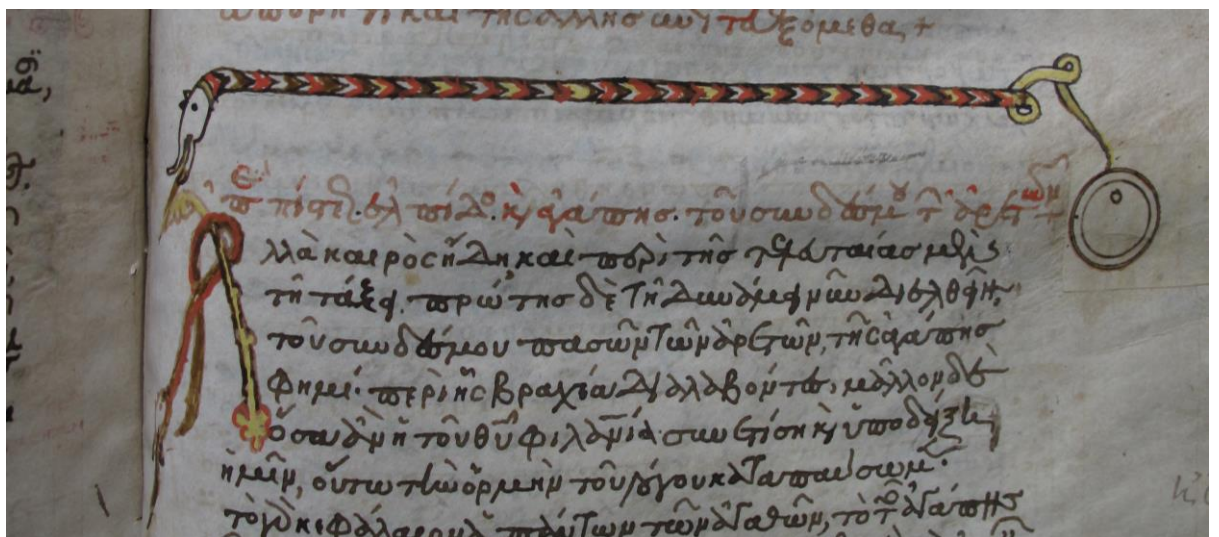 καὶ τῆς ἄλλης ταξόμεθα +
πίστε ἐλπίδο κ ἀγάπης. τοῦ συνδέσμου τ ἀρετ
Ἀλλὰ καιρὸς ἤδη, καὶ περὶ τῆς τελευταίας μὲν
τῇ τάξει. πρώτης δὲ τῇ δυνάμει νῦν διελθεῖν,
τοῦ συνδέσμου πασῶν τῶν ἀρετῶν, τῆς ἀγάπης
φημί· περὶ ἧς βραχέα διαλαβόντες, μᾶλλον δὲ
ὅσα ἂν ἡ τοῦ θῦ φιλανία συνετίση κ ὑποδείξει
ἡμῖν, οὕτω τὴν ὁρμὴν τοῦ λόγου καταπαύσωμεν·
τὸ γὰρ κεφάλαιον πάντων τῶν ἀγαθῶν, τὸ τ ἀγάπης